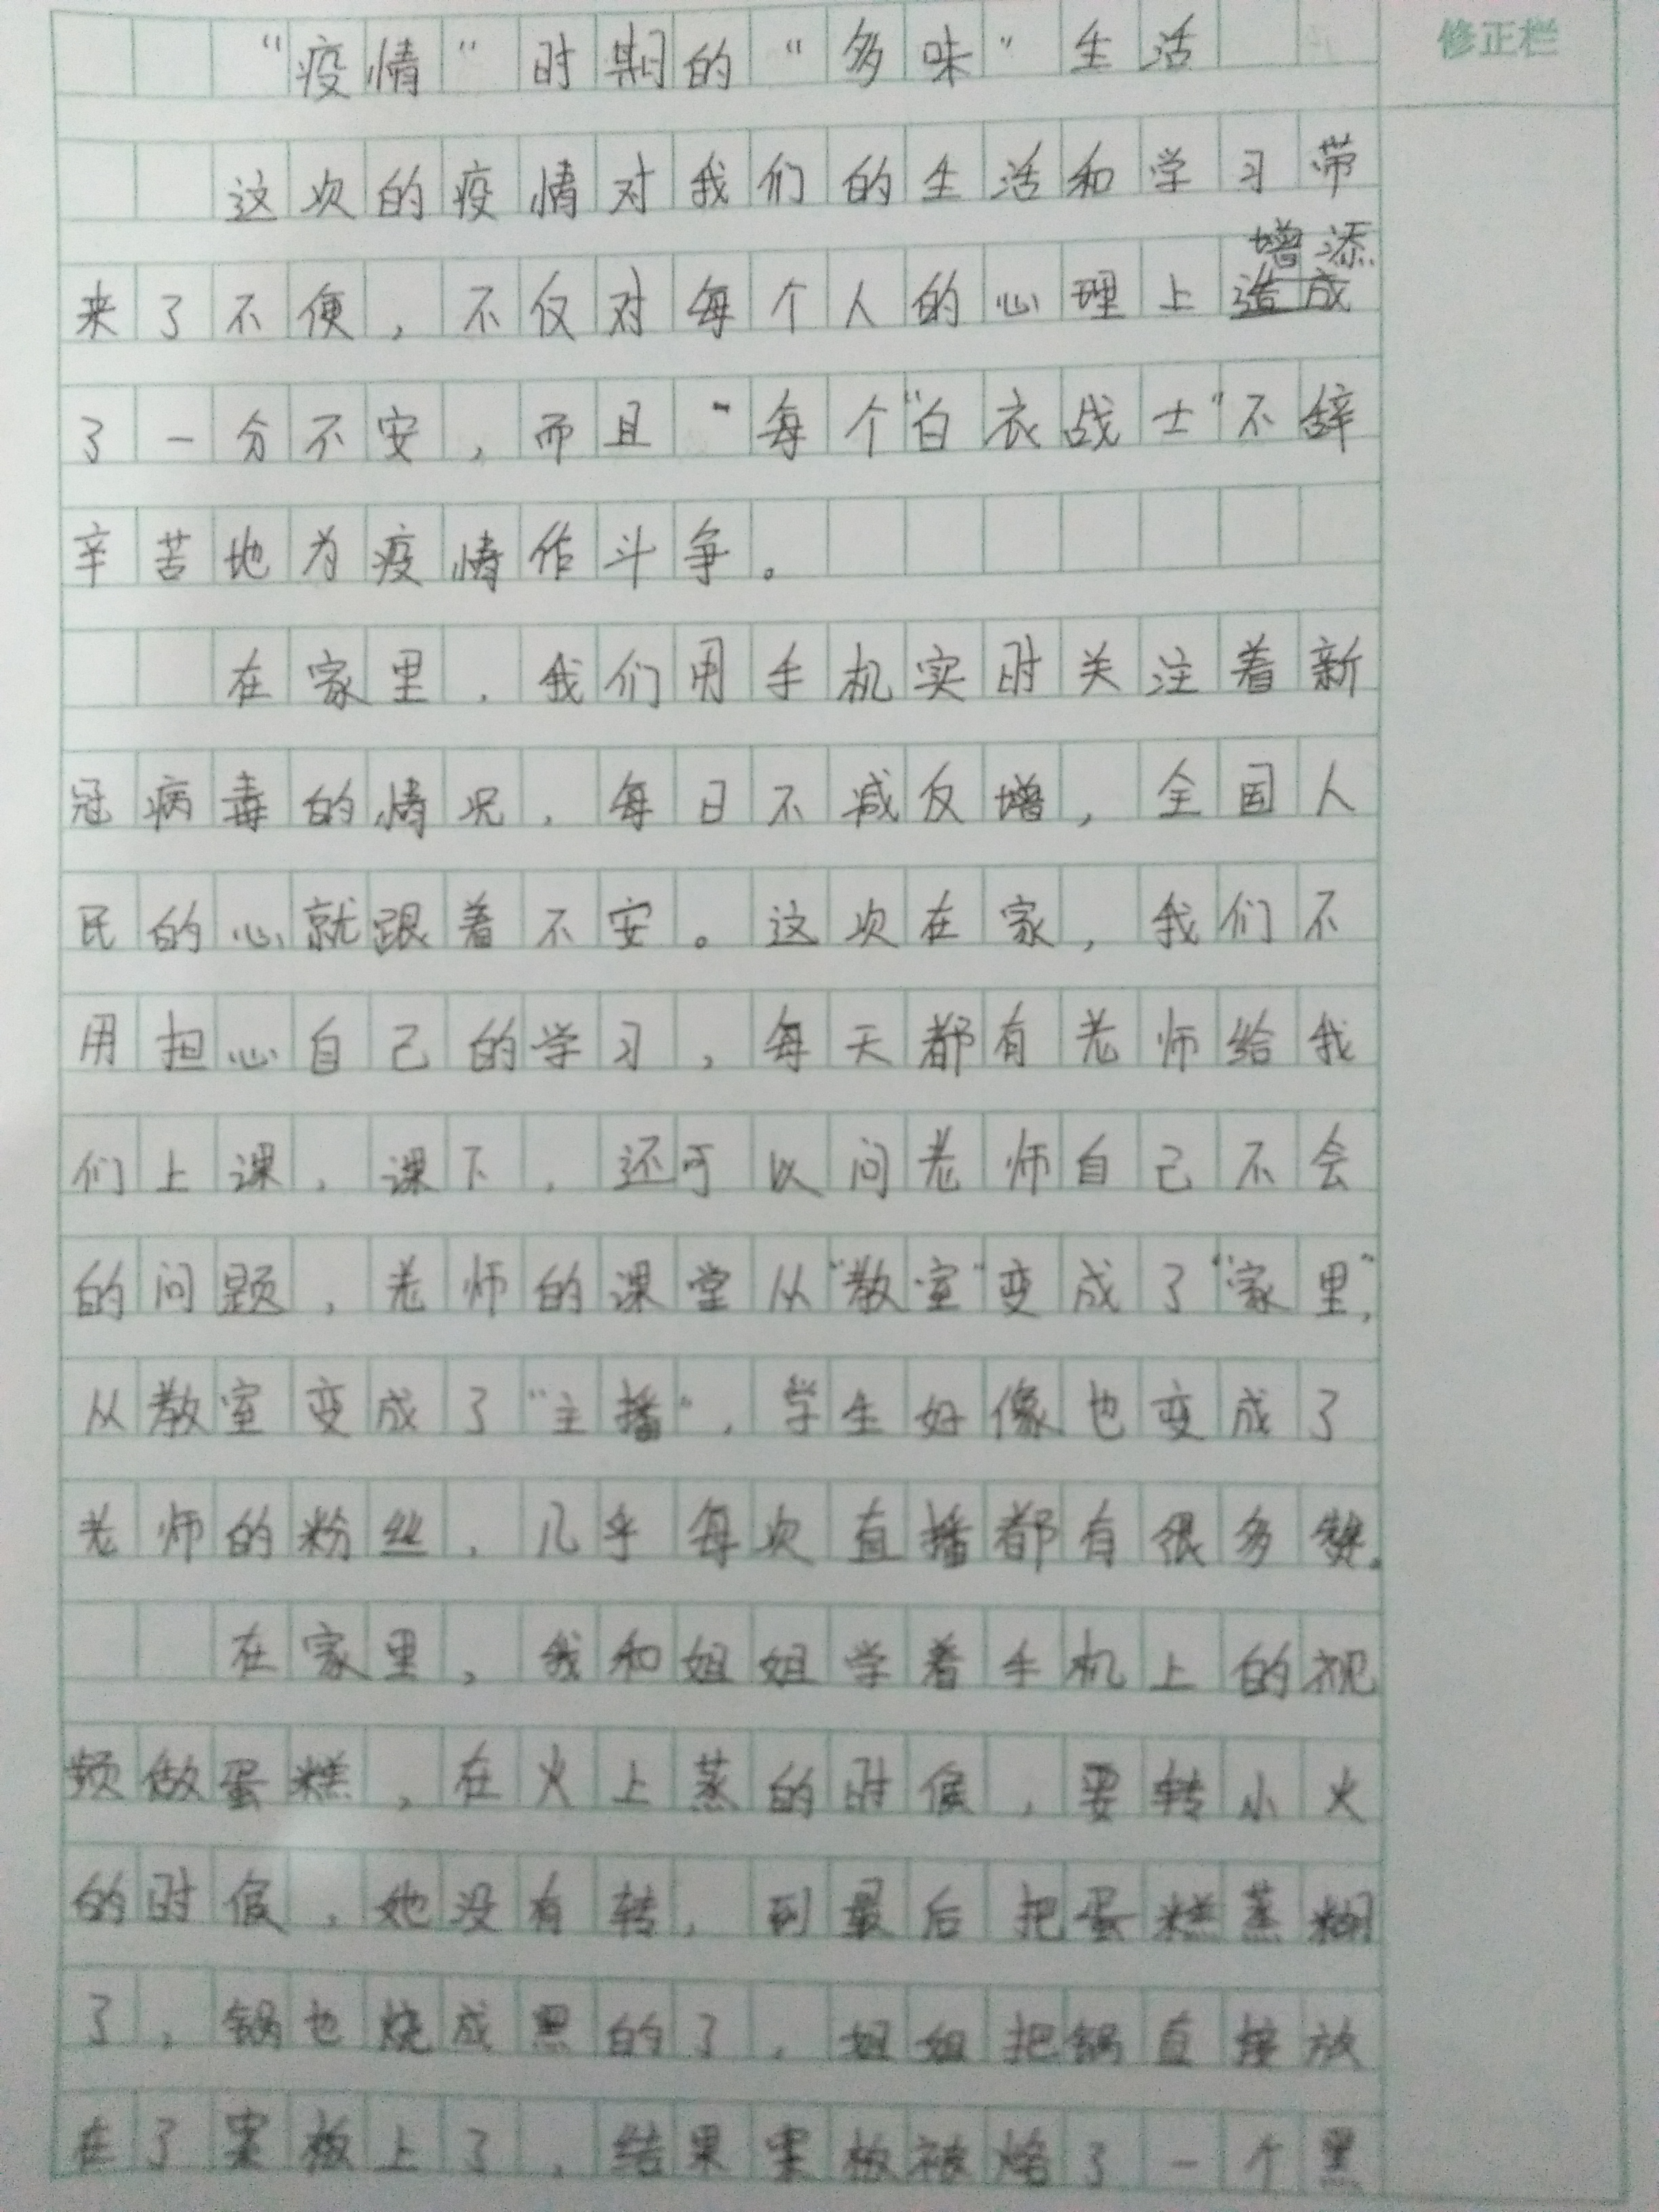 "疫情"时期的"多味"生活
修正栏
这次的疫情对我们的生活和学习带
增添
来了不便，不仅对每个人的心理上造成
了一分不安，而且每个"白衣战士"不辞
辛苦地为疫情作斗争。
在家里，我们用手机实时关注着新
冠病毒的情况，每日不减反增，全国人
民的心就跟着不安。这次在家，我们不
用担心自己的学习，每天都有老师给我
们上课，课下，还可以问老师自己不会
的问题，老师的课堂从"教室"变成了"家里"，
从教室变成了"主播"，学生好像也变成了
老师的粉丝，几乎每次直播都有很多赞。
在家里，我和姐姐学着手机上的视
频做蛋糕，在火上蒸的时候，要转小火
的时候，她没有转，到最后把蛋糕蒸糊
了，锅也烧成黑的了，姐姐把锅直接放
在了案板上了，结果案板被烙了一个黑